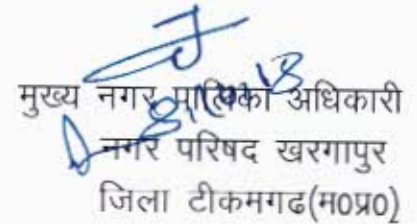 मुख्य नगर पालिका अधिकारी
नगर परिषद खरगापुर
जिला टीकमगढ(म0प्र0)